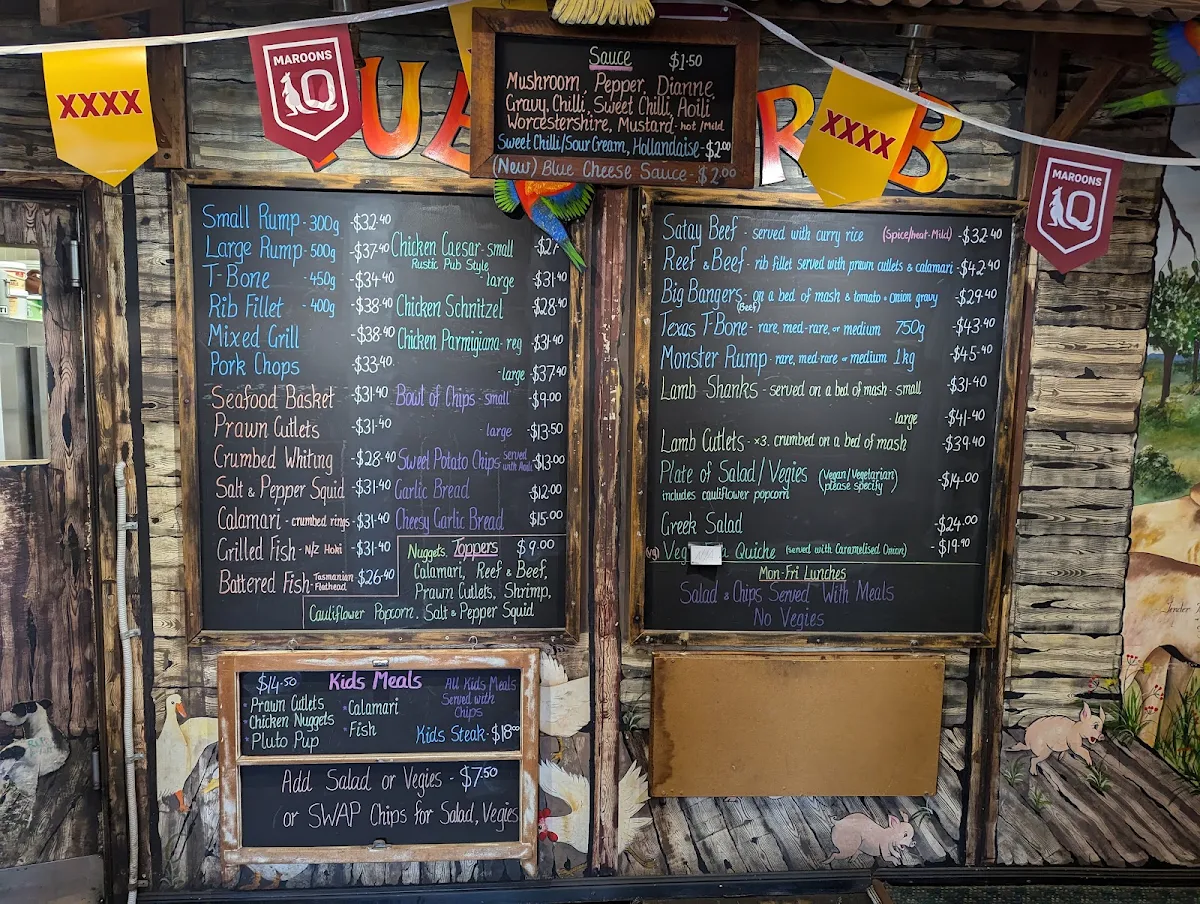 XXXX
MAROONS
Q
XXXX
MAROONS
Q
UE
RB
Sauce $1.50
Mushroom, Pepper, Dianne
Gravy, Chilli, Sweet Chilli, Aoili
Worcestershire, Mustard - hot/Mild
Sweet Chilli/Sour Cream, Hollandaise - $2.00
(New) Blue Cheese Sauce - $2.00
Small Rump - 300g -$32.40
Large Rump - 500g -$37.40
T-Bone - 450g -$34.40
Rib Fillet - 400g -$38.40
Mixed Grill -$38.40
Pork Chops -$33.40
Seafood Basket -$31.40
Prawn Cutlets -$31.40
Crumbed Whiting -$28.40
Salt & Pepper Squid -$31.40
Calamari - crumbed rings -$31.40
Grilled Fish - N/Z Hoki -$31.40
Battered Fish - Tasmanian Flathead $26.40
Chicken Caesar - small $27
Rustic Pub Style
- large $31.40
Chicken Schnitzel $28.40
Chicken Parmigiana - reg -$31.40
- large -$37.40
Bowl of Chips - small $9.00
- large -$13.50
Sweet Potato Chips served with Aioli -$13.00
Garlic Bread $12.00
Cheesy Garlic Bread $15.00
Toppers $9.00
Nuggets,
Calamari, Reef & Beef,
Prawn Cutlets, Shrimp,
Cauliflower Popcorn, Salt & Pepper Squid
Satay Beef - served with curry rice (Spice/heat-Mild) -$32.40
Reef & Beef - rib fillet served with prawn cutlets & calamari -$42.40
Big Bangers - on a bed of mash & tomato & onion gravy -$29.40
(Beef)
Texas T-Bone - rare, med-rare, or medium 750g -$43.40
Monster Rump - rare, med-rare or medium 1kg -$45.40
Lamb Shanks - served on a bed of mash - small -$31.40
large -$41.40
Lamb Cutlets - x3. crumbed on a bed of mash -$39.40
Plate of Salad/Vegies (Vegan/Vegetarian please specify) -$14.00
includes cauliflower popcorn
Greek Salad -$24.00
(vg) Quiche (served with Caramelised Onion) -$19.40
Mon-Fri Lunches
Salad & Chips Served With Meals
No Vegies
$14.50 Kids Meals
Prawn Cutlets
Chicken Nuggets
Pluto Pup
Calamari
Fish
All Kids Meals
Served with
Chips
Kids Steak - $18.00
Add Salad or Vegies - $7.50
or SWAP Chips for Salad, Vegies